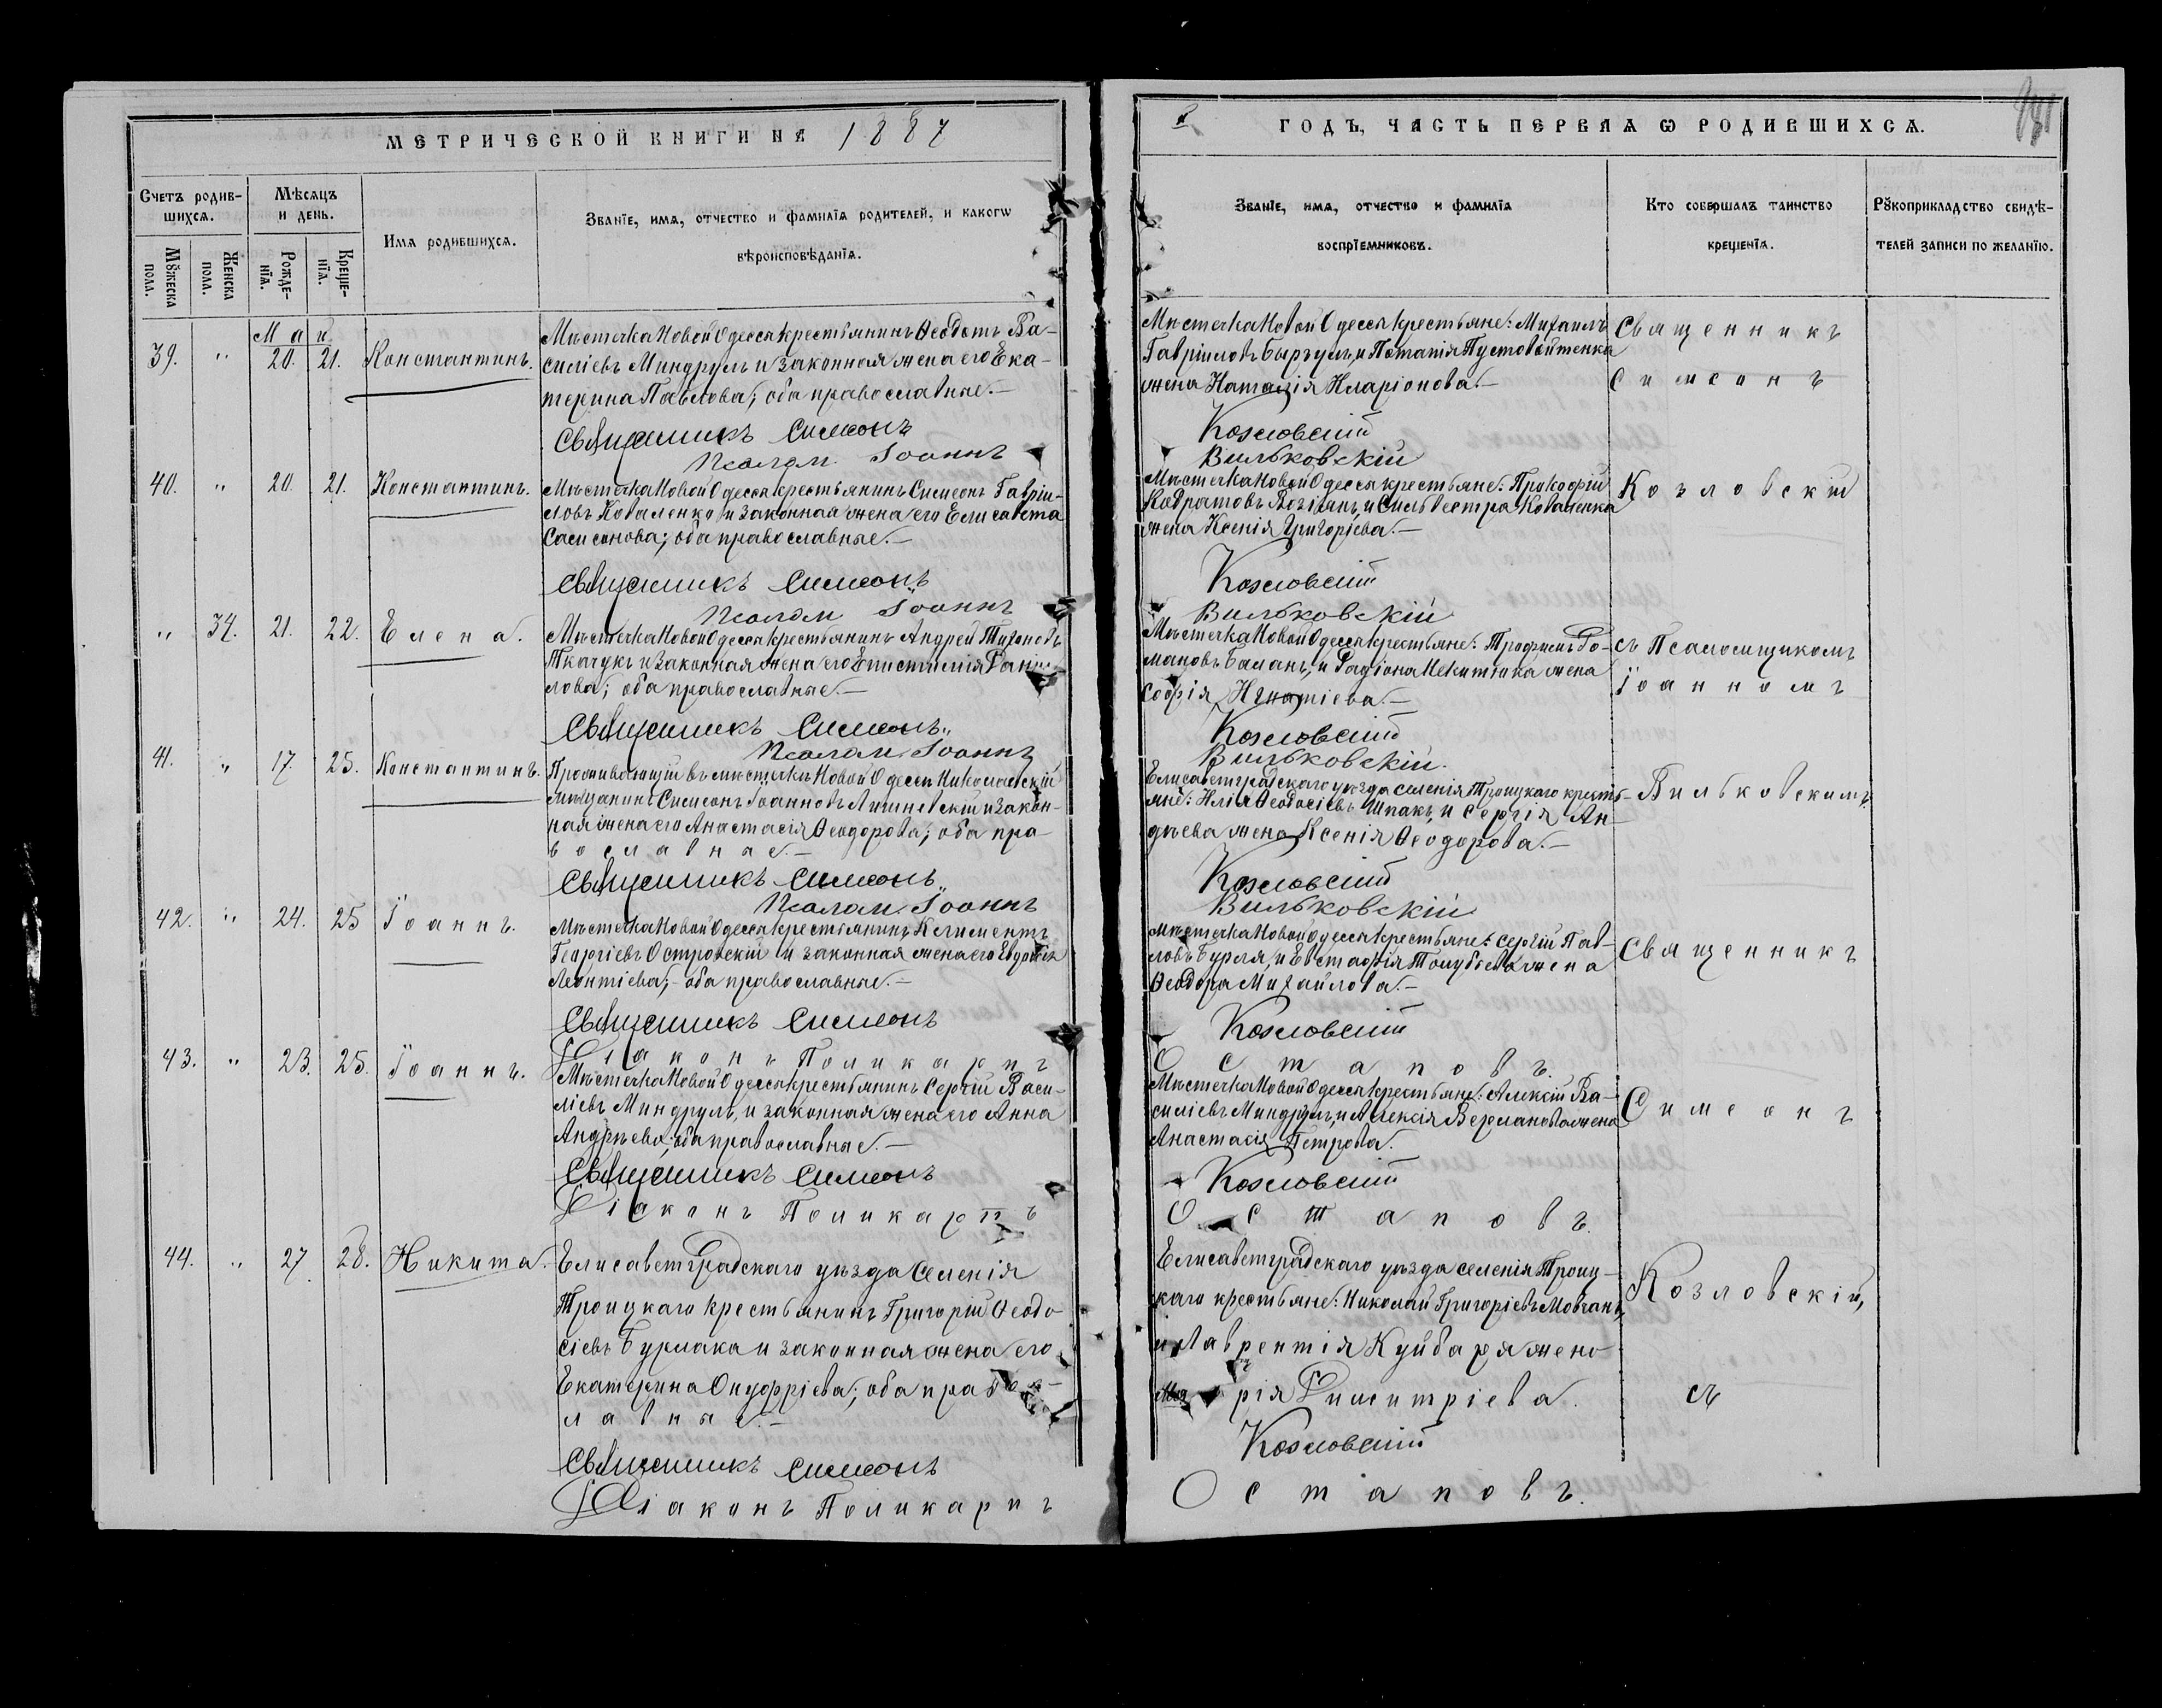 МЕТРИЧЕСКОЙ КНИГИ НА 1887
Счетъ родившихся.
Мѣсяцъ и день.
Имя родившихся.
Званіе, имя, отчество и фамилія родителей, и какогѡ
вѣроисповѣданія.
Мꙋжеска пола.
Женска пола.
Рожденія.
Крещенія.
Май
39. " 20. 21. Константинъ.
Мѣстечка Новой Одессы крестьянинъ Ѳеодотъ Ва-
силіевъ Миндруль и законная жена его Ека-
терина Павлова; оба православные.—
Священникъ Симеонъ
Псалом. Іоаннъ
40. " 20. 21. Константинъ.
Мѣстечка Новой Одессы крестьянинъ Симеонъ Гавріи-
ловъ Коваленко и законная жена его Елисавета
Самсонова; оба православные.—
Священникъ Симеонъ
Псалом Іоаннъ
" 34. 21. 22. Елена.
Мѣстечка Новой Одессы крестьянинъ Андрей Тихоновъ
Ткачукъ и законная жена его Епистимія Дані-
лова; оба православные.—
Священникъ Симеонъ
Псалом. Іоаннъ
41. " 17. 25. Константинъ.
Проживающій въ мѣстечкѣ Новой Одессѣ Николаевскій
мѣщанинъ Симеонъ Іоанновъ Лишневскій и закон-
ная жена его Анастасія Ѳеодорова; оба пра-
вославные.—
Священникъ Симеонъ
Псалом. Іоаннъ
42. " 24. 25 Іоаннъ.
Мѣстечка Новой Одессы крестьянинъ Климентъ
Георгіевъ Островскій и законная жена его
Леонтіева; оба православные.—
Священникъ Симеонъ
Діаконъ Поликарпъ
43. " 23. 25. Іоаннъ.
Мѣстечка Новой Одессы крестьянинъ Сергій Васи-
ліевъ Миндруль, и законная жена его Анна
Андрѣева; оба православные.—
Священникъ Симеонъ
Діаконъ Поликарпъ
44. " 27. 28. Никита.
Елисаветградскаго уѣзда селенія
Троицкаго крестьянинъ Григорій Ѳеодо-
сіевъ Бурлака и законная жена его
Екатерина Онуфріева; оба правос-
лавные.—
Священникъ Симеонъ
Діаконъ Поликарпъ
ГОДЪ, ЧАСТЬ ПЕРВАЯ Ѡ РОДИВШИХСЯ.
Званіе, имя, отчество и фамилія
воспріемниковъ.
Кто совершалъ таинство
крещенія.
Рꙋкоприкладство свидѣ-
телей записи по желанію.
Мѣстечка Новой Одессы крестьяне: Михаилъ
Гавріиловъ и Потапія Пустовойтенка
жена Наталія Иларіонова.—
Козловскій
Вильковскій
Мѣстечка Новой Одессы крестьяне: Прокофій
Кодратовъ и Сильвестра Коваленка
жена Ксенія Григоріева.—
Козловскій
Вильковскій
Мѣстечка Новой Одессы крестьяне: Трофимъ Ро-
мановъ Баланъ, и Радіона жена
Софія Игнатіева.—
Козловскій
Вильковскій.
Елисаветградскаго уѣзда селенія Троицкаго кресть-
яне: Илія Ѳеодосіевъ Шпакъ, и Сергія Ан-
дѣева жена Ксенія Ѳеодорова.—
Козловскій
Вильковскій
Мѣстечка Новой Одессы крестьяне: Сергій Пав-
ловъ Бурля, и Евстафія жена
Ѳеодора Михайлова.—
Козловскій
Остаповъ.
Мѣстечка Новой Одессы крестьяне: Алексій Ва-
силіевъ Миндруль, и Алексія Верланова жена
Анастасія Петрова.
Козловскій
Остаповъ.
Елисаветградскаго уѣзда селенія Троиц-
каго крестьяне: Николай Григоріевъ Мовчанъ,
и Лаврентія Куйбаря жена
Марія Димитріева.
Козловскій
Остаповъ.
Священникъ
Симеонъ
Козловскій
съ Псаломщикомъ
Іоанномъ
Вильковскимъ.
Священникъ
Симеонъ
Козловскій,
съ